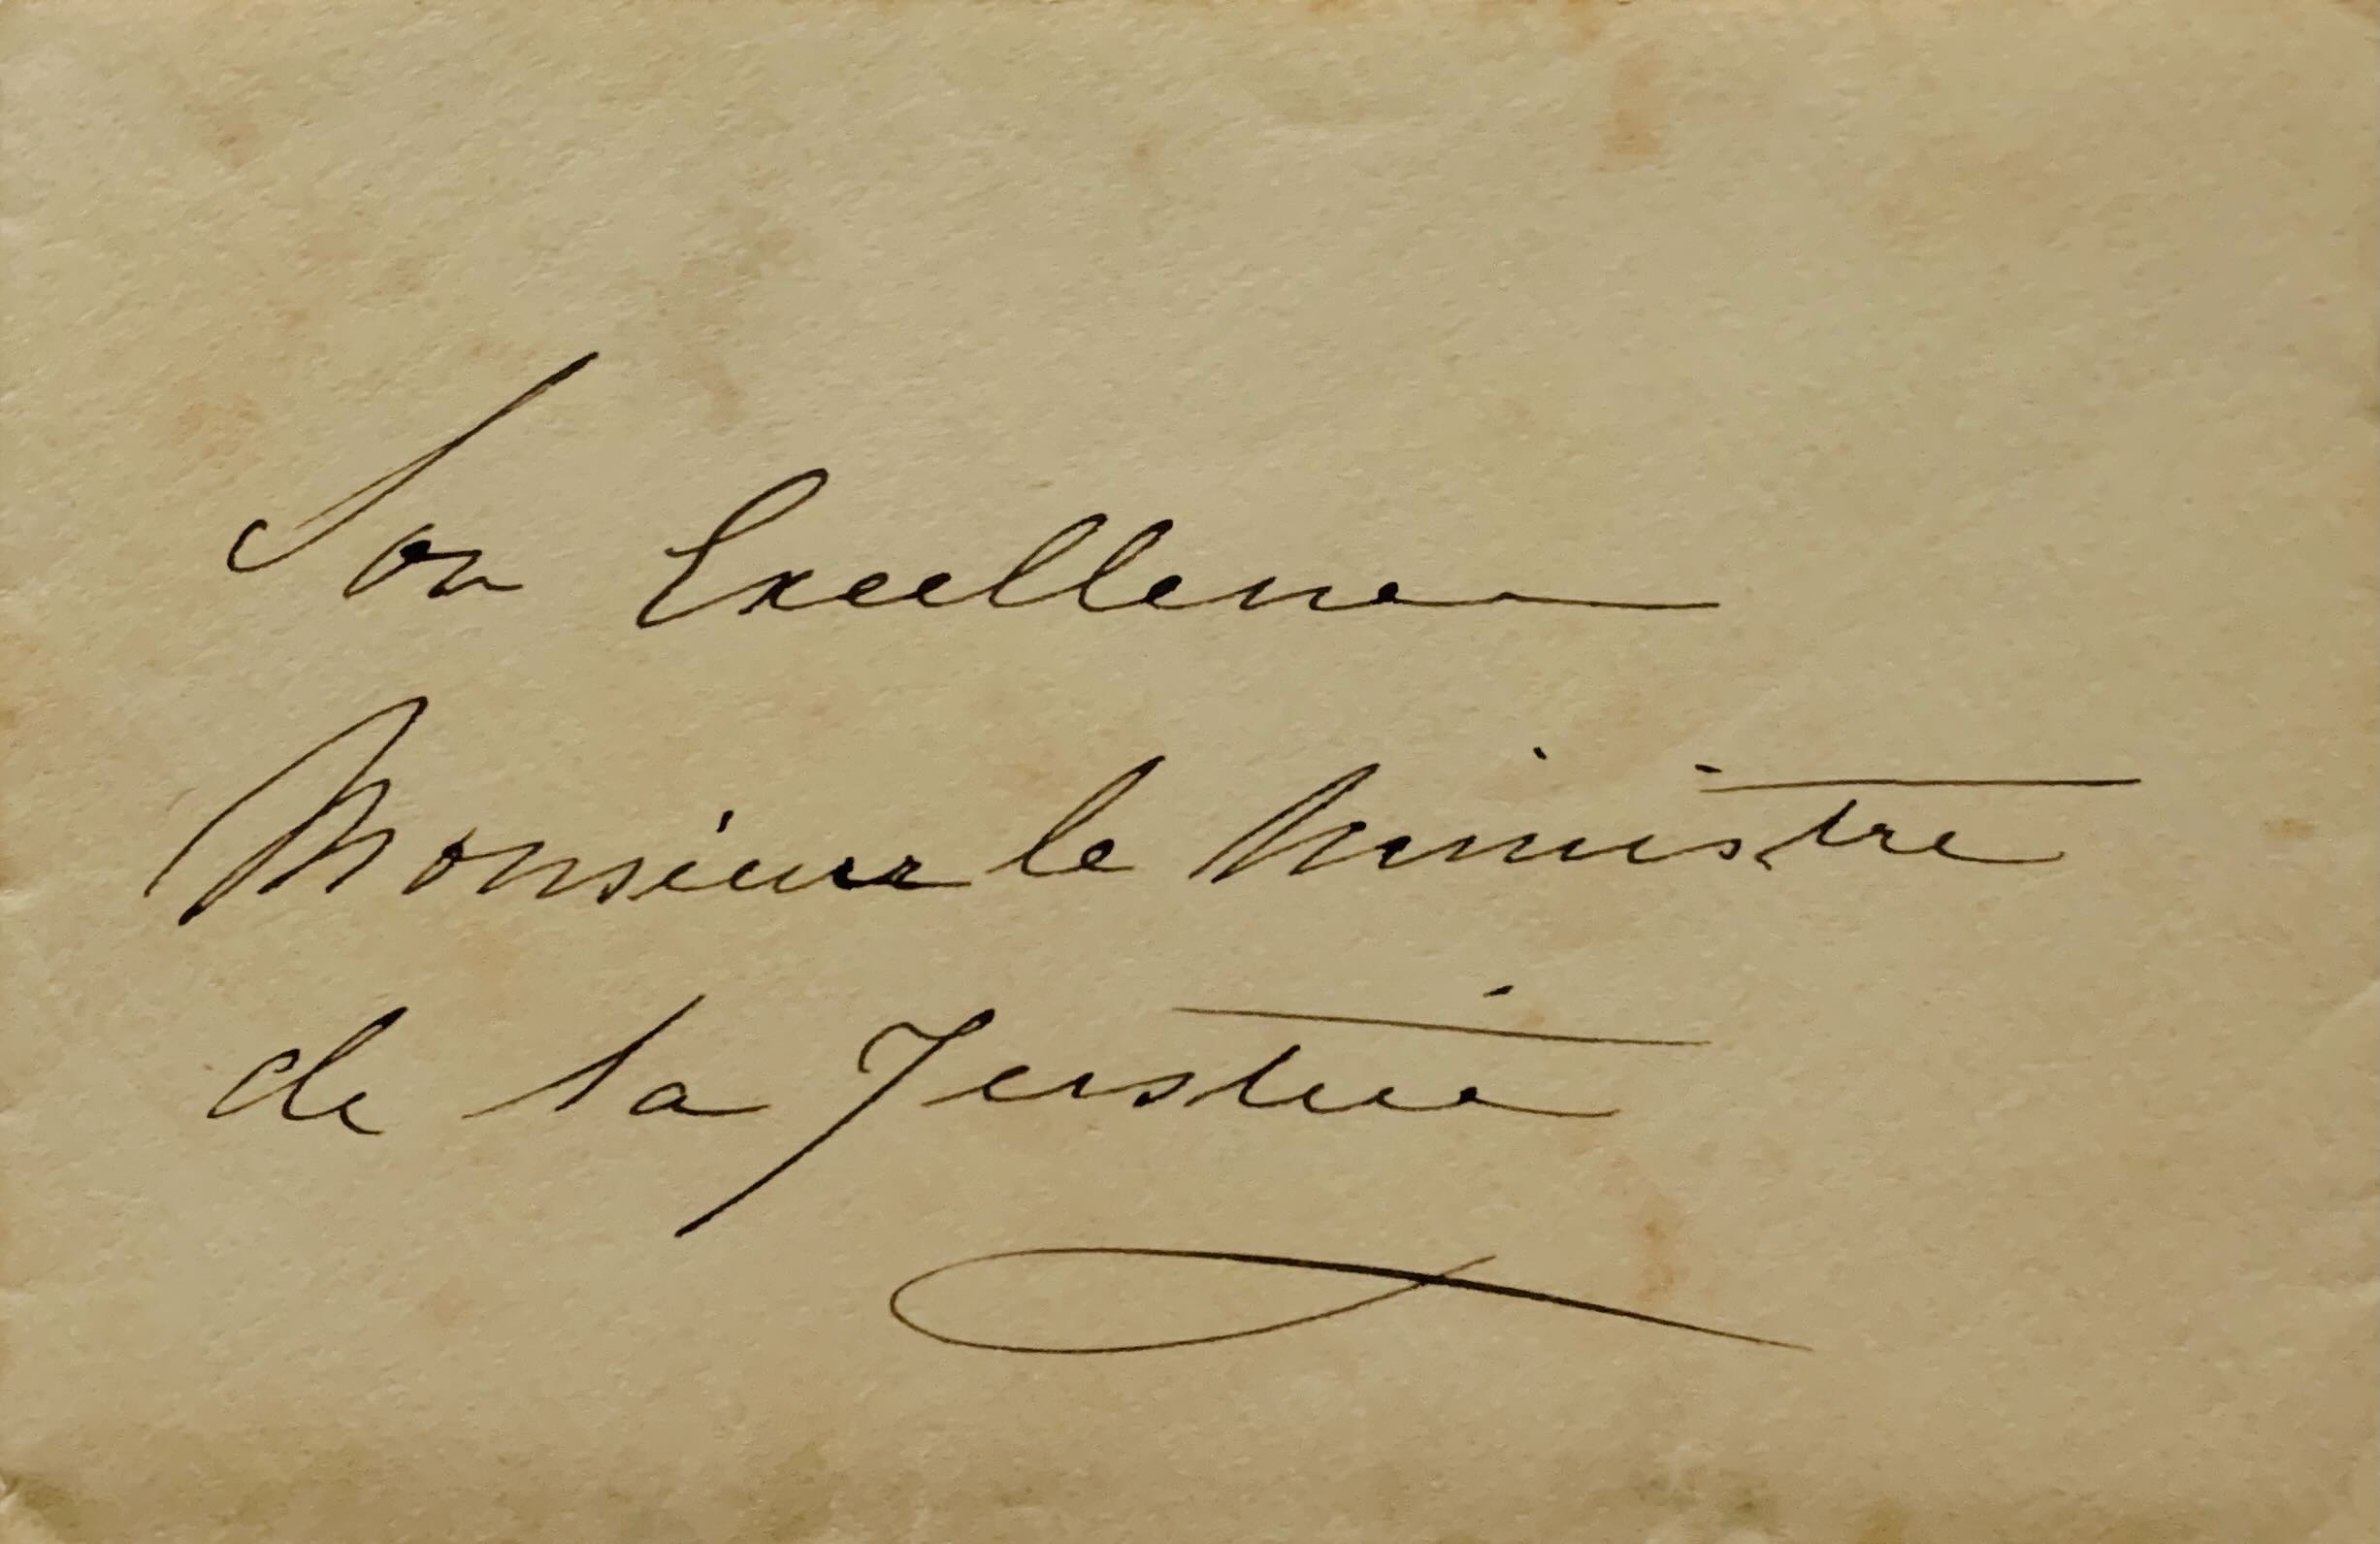 Son Excellence
Monsieur le Ministre
de la Justice